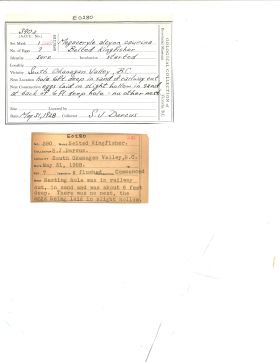 E0280
390a
Set Mark 1 Megaceryle alcyon caurina
No. of Eggs 7 Belted Kingfisher
Identity sure Incubation started
Locality
Vicinity South Okanagan Valley, B.C.
Nest Location 6 feet deep in sand of railway cut
Nest Construction eggs laid in slight hollow in sand
at back of 6 ft deep hole - no other nest
Date May 31, 1928 Collector S J Darcus
E0280
No. 390 Belted Kingfisher.
S.J.Darcus.
South Okanagan Valley, B.C.
May 31, 1928.
7 flushed Commenced
Nesting hole was in railway
cut, in sand and was about 6 feet
deep. There was no nest, the
eggs being laid in slight hollow